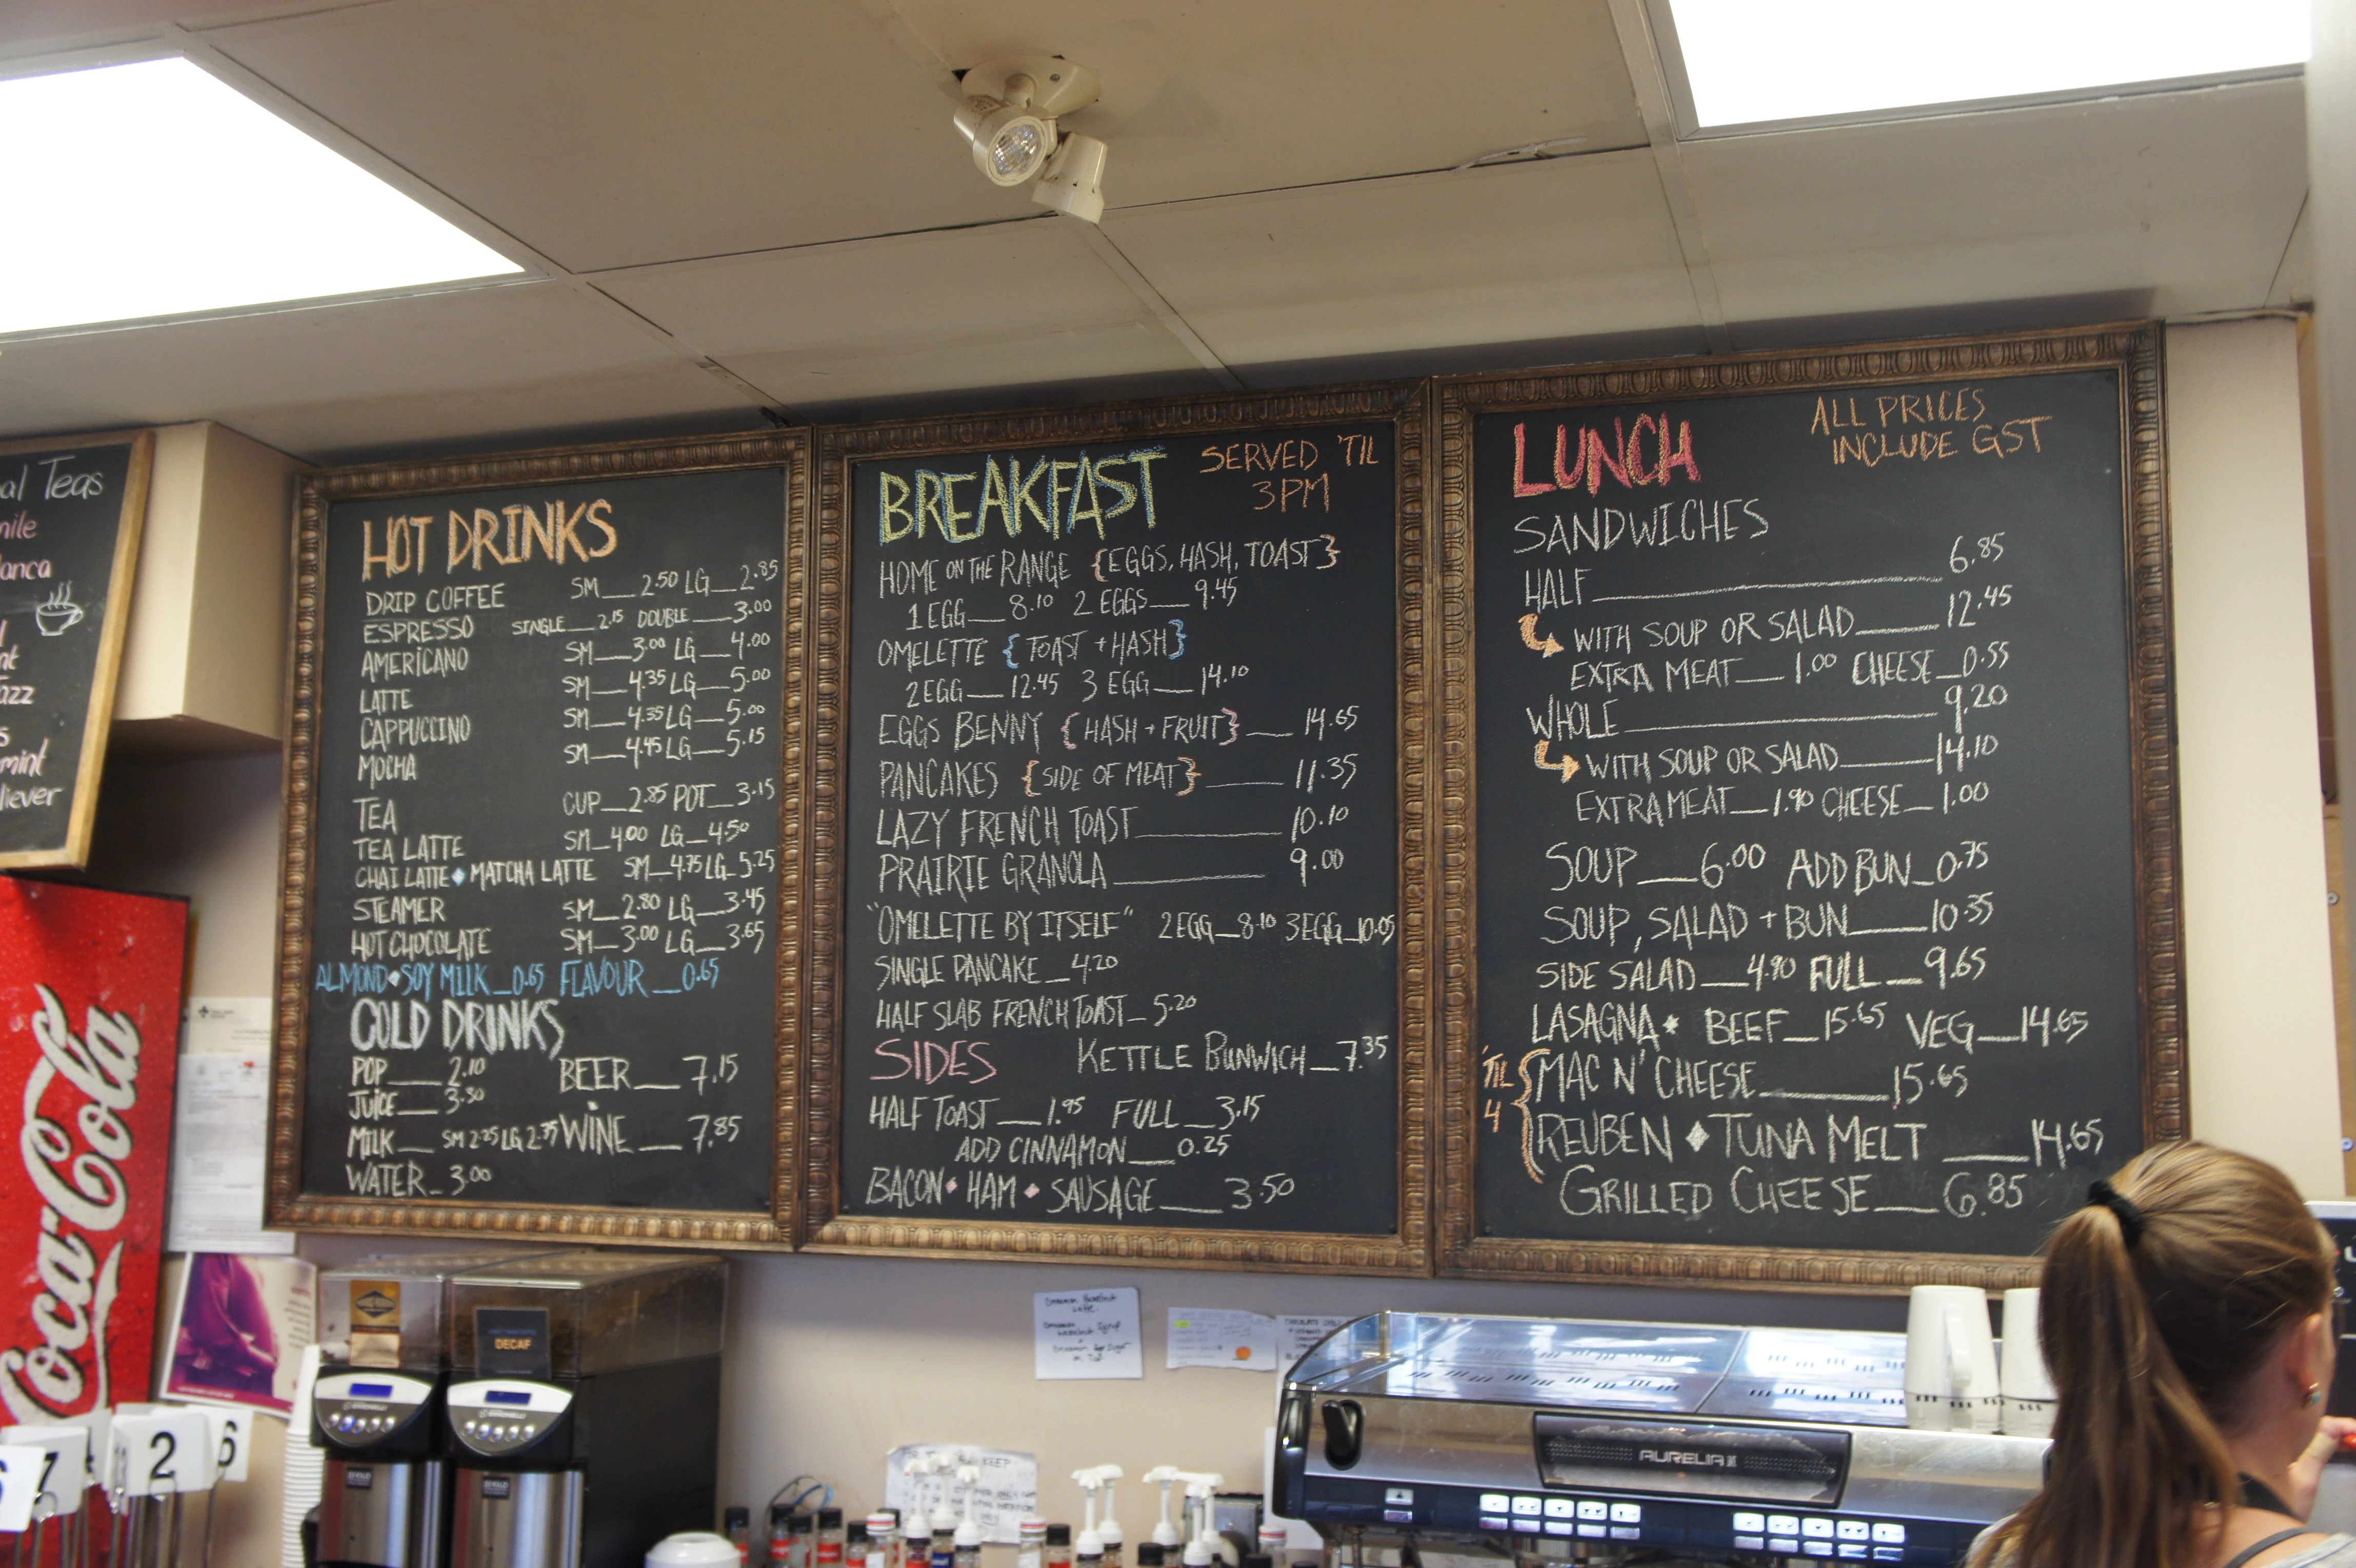 al Teas
nile
lanca
nt
azz
s
mint
liever
HOT DRINKS
DRIP COFFEE SM__2.50 LG__2.85
ESPRESSO SINGLE__2.15 DOUBLE__3.00
AMERICANO SM__3.00 LG__4.00
LATTE SM__4.35 LG__5.00
CAPPUCCINO SM__4.35 LG__5.00
MOCHA SM__4.45 LG__5.15
TEA CUP__2.85 POT__3.15
TEA LATTE SM_4.00 LG_4.50
CHAI LATTE ◆ MATCHA LATTE SM_4.75 LG_5.25
STEAMER SM__2.80 LG__3.45
HOT CHOCOLATE SM__3.00 LG__3.65
ALMOND ◆ SOY MILK_0.65 FLAVOUR__0.65
COLD DRINKS
POP___2.10 BEER__7.15
JUICE__3.30
MILK__SM 2.25 LG 2.75 WINE__7.85
WATER_3.00
BREAKFAST SERVED 'TIL
3PM
HOME ON THE RANGE {EGGS, HASH, TOAST}
1 EGG__8.10 2 EGGS__9.45
OMELETTE {TOAST + HASH}
2 EGG__12.45 3 EGG__14.10
EGGS BENNY {HASH + FRUIT}__14.65
PANCAKES {SIDE OF MEAT}____11.35
LAZY FRENCH TOAST______10.10
PRAIRIE GRANOLA______9.00
"OMELETTE BY ITSELF" 2EGG_8.10 3EGG_10.05
SINGLE PANCAKE_4.20
HALF SLAB FRENCH TOAST_5.20
SIDES KETTLE BUNWICH_7.35
HALF TOAST__1.95 FULL_3.15
ADD CINNAMON__0.25
BACON ◆ HAM ◆ SAUSAGE__3.50
LUNCH ALL PRICES
INCLUDE GST
SANDWICHES
HALF__________6.85
WITH SOUP OR SALAD____12.45
EXTRA MEAT__1.00 CHEESE_0.55
WHOLE__________9.20
WITH SOUP OR SALAD____14.10
EXTRA MEAT_1.90 CHEESE_1.00
SOUP__6.00 ADD BUN_0.75
SOUP, SALAD + BUN___10.35
SIDE SALAD__4.90 FULL__9.65
LASAGNA* BEEF_15.65 VEG__14.65
'TIL 4 { MAC N' CHEESE_____15.65
REUBEN ◆ TUNA MELT___14.65
GRILLED CHEESE__6.85
Coca-Cola
DECAF
AURELIA II
7
2
6